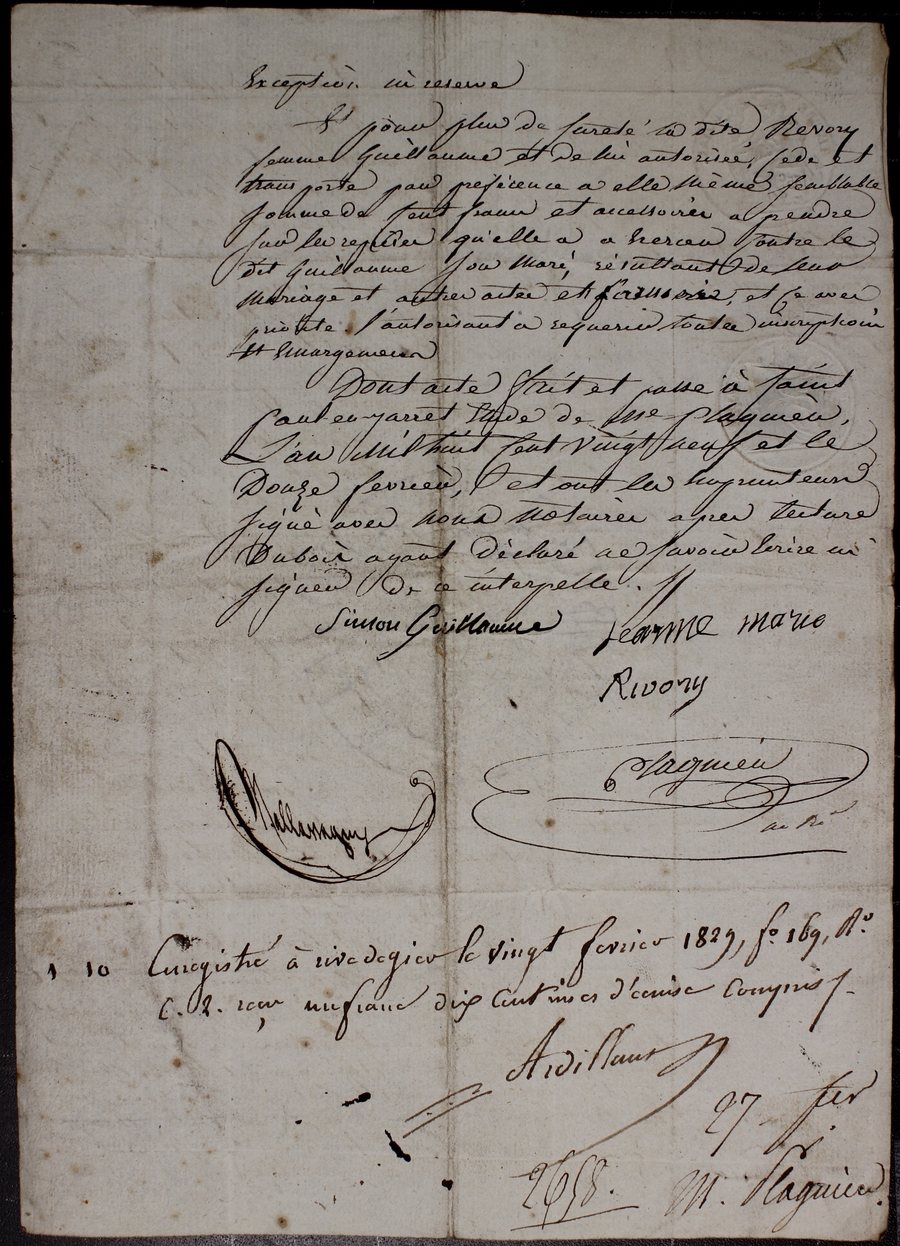 Exception ni reserve
Et pour plus de sureté la dite Revory
femme Guillaume et de lui autorisée, cede et
transporte par preference a elle même semblable
somme de cent francs et accessoires a prendre
sur les reprises qu'elle a a Exercer contre le
dit Guillaume son mari, résultant de leur
mariage et autres actes et , et ce avec
priorite l'autorisant a requerir toutes inscriptions
Et Emargemens
Dont acte Fait et passé à Saint
paul en jarret Etude de Me plagnieu,
L'an Mil huit cent vingt neuf et le
Douze fevrier, et ont les Emprunteurs
signé avec nous Notaires apres lecture
Dubois ayant déclaré ne savoir Ecrire ni
signer De ce interpellé.
Simon Guillaume
Jeanne Marie
Rivory
plagnieu
Enregistré à rivedegier le vingt fevrier 1829, fo. 169, Ro.
1 10
C. 2. reçu un franc dix centimes d'écime compris
Ardillant
27 fer
2658.
M. Plagnieu